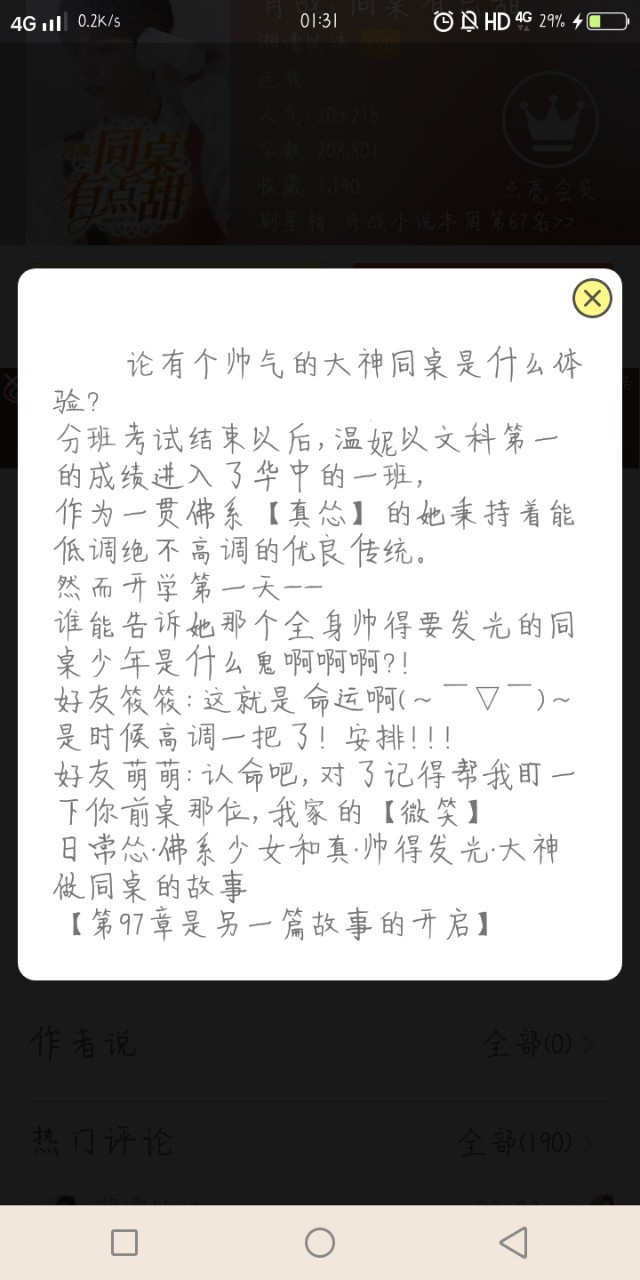 4G 0.2K/s 01:31 HD 4G 29%
肖战 同桌有点甜
连载
人气 205,215
字数 208,801
收藏 1,140
点亮会员
同桌
有点甜
影星榜·肖战小说本周第67名>>
论有个帅气的大神同桌是什么体
验?
分班考试结束以后,温妮以文科第一
的成绩进入了华中的一班,
作为一贯佛系【真怂】的她秉持着能
低调绝不高调的优良传统。
然而开学第一天--
谁能告诉她那个全身帅得要发光的同
桌少年是什么鬼啊啊啊?!
好友筱筱:这就是命运啊(~￣▽￣)~
是时候高调一把了！安排!!!
好友萌萌:认命吧,对了记得帮我盯一
下你前桌那位,我家的【微笑】
日常怂·佛系少女和真·帅得发光·大神
做同桌的故事
【第97章是另一篇故事的开启】
作者说 全部(0)
热门评论 全部(190)